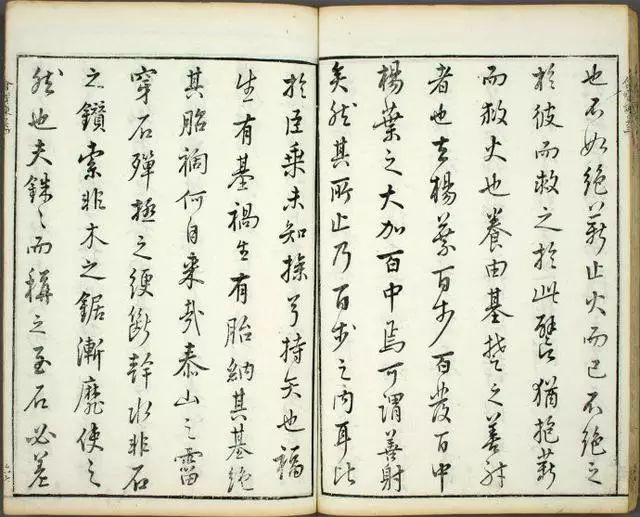 也不如絕薪止火而已不絕之
於彼而救之於此譬猶抱薪
而救火也養由基楚之善射
者也去楊葉百步百發百中
楊葉之大加百中焉可謂善射
矣然其所止乃百步之內耳比
於臣乘未知操弓持矢也福
生有基禍生有胎納其基絕
其胎禍何自來哉泰山之霤
穿石殫極之綆斷幹水非石
之鑽索非木之鋸漸靡使之
然也夫銖〻而稱之至石必差